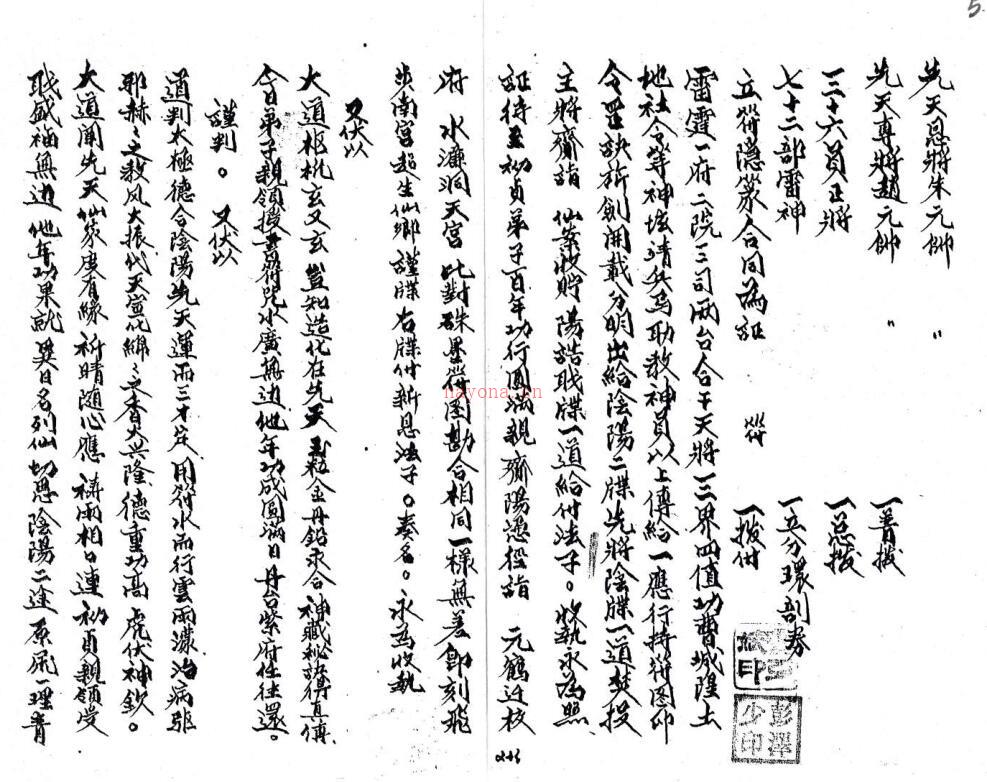 5
先天恩將朱元帥 一普援
先天專將趙元帥 〃 一总援
三十六員正將 一立分環剖券
七十二部雷神 一撥付
立符隱篆合同為証 符
雷霆一府二院三司兩台合干天將三界四值功曹城隍土
地社令等神壇靖兵馬助教神員以上傳給一應行持符图印
令罡訣祈劍開載分明出給陰陽二牒先將陰牒一道焚投
主將齋詣 仙案收貯陽誥职牒一道給付法子。收執永為照
証待至初貞弟子百年功行圓滿親齎陽憑徑詣 元鶴迁校
府 水濂洞天宮 比對硃墨符图勘合相同一樣無差即刻飛
步南宮超生仙鄉謹牒右牒付新恩法子。奏名。永為收執
又伏以
大道枢机玄又玄豈知造化在先天玉粒金丹鉛汞合神藏秘訣得真傳
今日弟子親領授靈符咒水廣無边他年功成圓滿日丹台紫府任往還。
謹判。 又伏以
道判太極德合陰陽先天運而三才定用符水而行雲雨濛治病驅
邪赫之之教风大振代天宣化綿之之香火兴隆德重功高虎伏神欽。
大道闡先天仙家度有緣祈晴随心應祷雨相口連初貞親領受
职盛福無边他年功果就異日名列仙切思陰陽二途原屍一理青
彭澤少印
nayona.cn